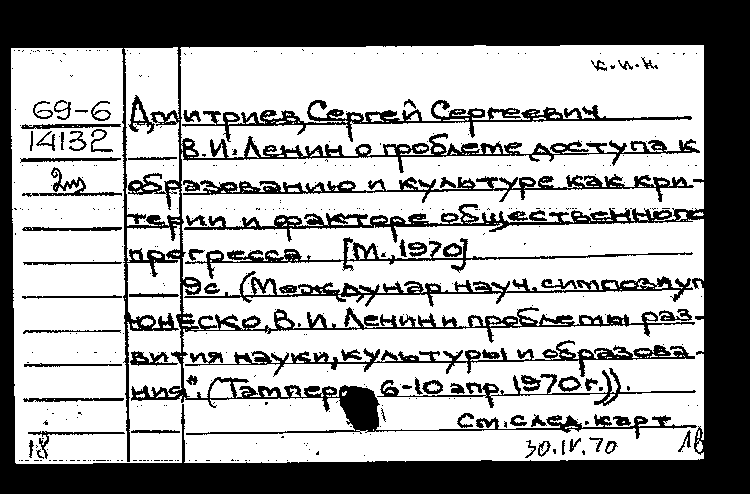 к.и.н.
69-6 Дмитриев, Сергей Сергеевич.
14132 В.И. Ленин о проблеме доступа к
образованию и культуре как кри-
терии и факторе общественного
прогресса. [М., 1970]
9с. (Междунар. науч. симпозиум
ЮНЕСКО „В.И. Ленин и проблемы раз-
вития науки, культуры и образова-
ния". (Тампере 6-10 апр. 1970 г.)).
См. след. карт.
18 30.IV.70 18